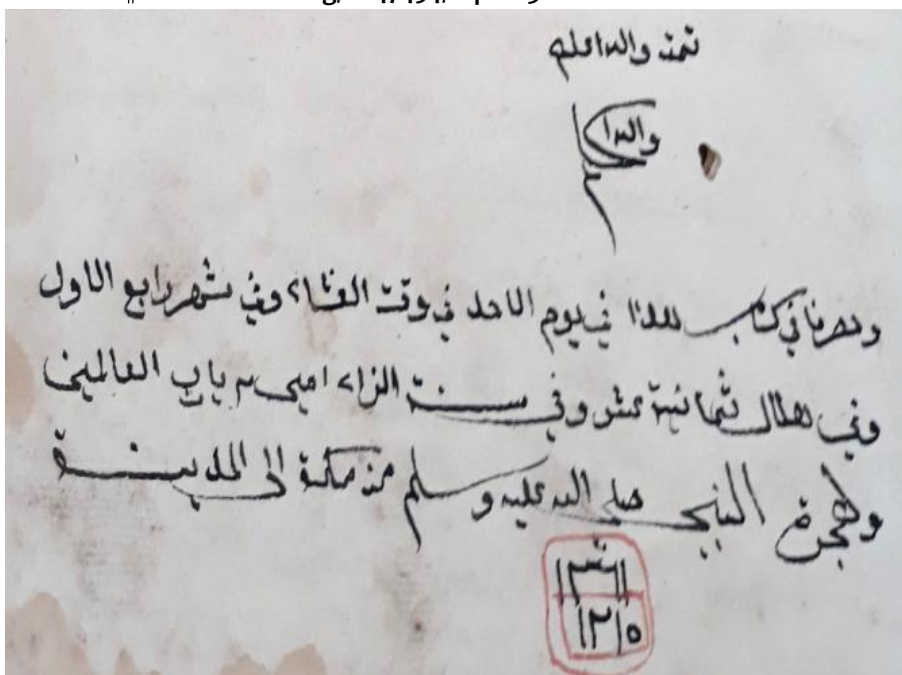 تمت والله اعلم
والله
وفرغنا في كتاب هذا في يوم الاحد في وقت العشاء وفي شهر رابع الاول
وفي هلال ثمانية عشر وفي سنة الزاء امين يا رب العالمين
وهجرة النبي صلى الله عليه وسلم من مكة الى المدينة
١٢١٥